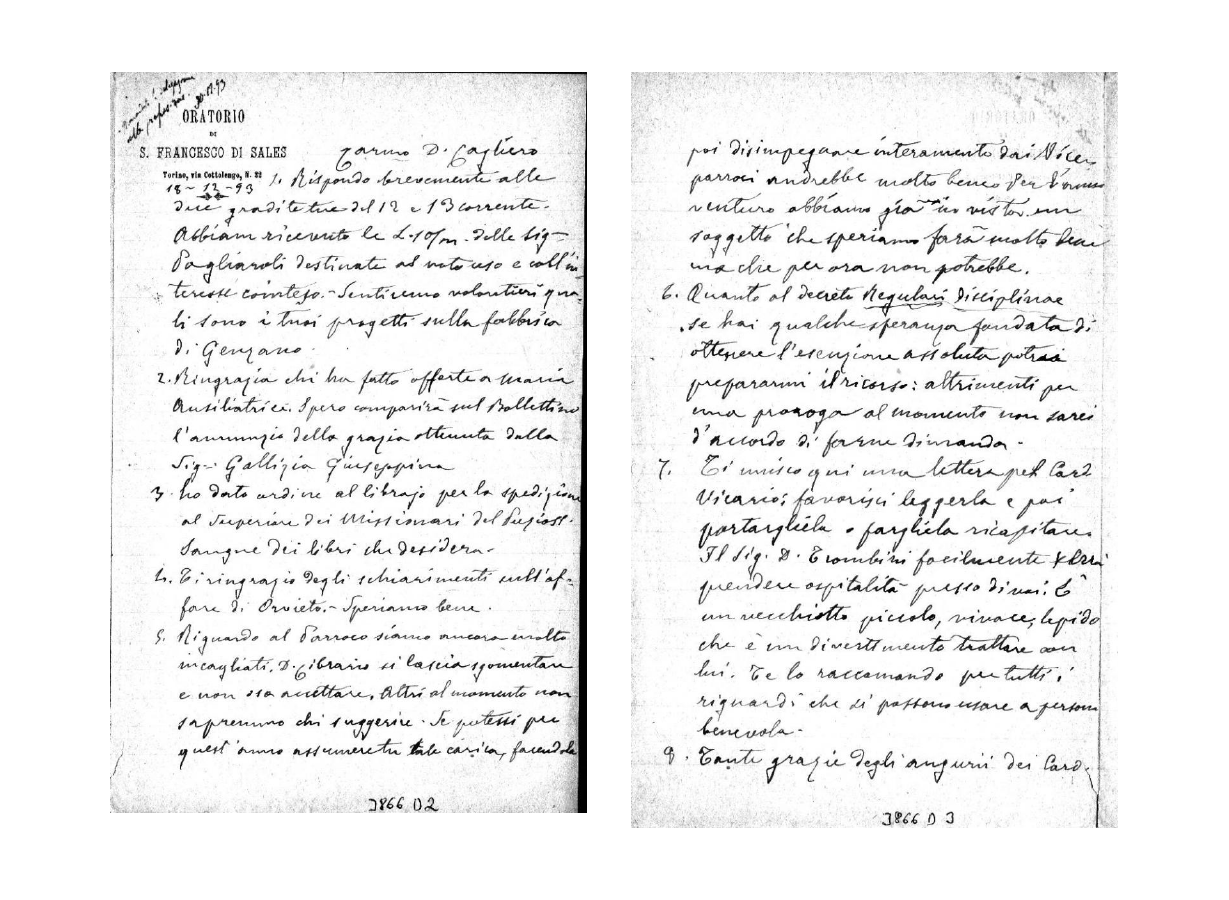 30-12-93
ORATORIO
DI
S. FRANCESCO DI SALES
Torino, via Cottolengo, N. 32
18-12-93
Carmo D. Cagliero
1. Rispondo brevemente alle
due gradite tue del 12 e 13 corrente.
Abbiam ricevuto le L. 10/m. delle Sig-
Pagliaroli destinate al noto uso e coll'in-
teresse cointeso.- Sentiremo volentieri qua-
li sono i tuoi progetti sulla fabbrica
di Genzano.
2. Ringrazia chi ha fatto offerte a Maria
Ausiliatrice. Spero comparirà sul Bollettino
l'annunzio della grazia ottenuta dalla
Sig- Gallizia Giuseppina
3. Ho dato ordine al librajo per la spedizione
al Superiore dei Missionari del Prezioss.
Sangue dei libri che desidera.
4. Ti ringrazio degli schiarimenti sull'af-
fare di Orvieto.- Speriamo bene.
5. Riguardo al Parroco siamo ancora molto
incagliati. D. Cibrario si lascia sgomentare
e non osa accettare. Altri al momento non
sapremmo chi suggerire. Se potessi per
quest'anno assumere tu tale carica, facendola
3866 D 2
poi disimpegnare interamente dai Vice-
parroci andrebbe molto bene. Per l'anno
venturo abbiamo già in vista un
soggetto che speriamo farà molto bene
ma che per ora non potrebbe.
6. Quanto al decreto Regulari Disciplinae
se hai qualche speranza fondata di
ottenere l'esenzione assoluta potrai
prepararmi il ricorso: altrimenti per
una proroga al momento non sarei
d'accordo di farne dimanda.
7. Ti unisco qui una lettera pel Card
Vicario: favorisci leggerla e poi
portargliela o fargliela ricapitare.
Il Sig. D. Trombini facilmente verrà
prendere ospitalità presso di voi. È
un vecchiotto piccolo, vivace, lepido
che è un divertimento trattare con
lui. Te lo raccomando per tutti i
riguardi che si possono usare a persona
benevola.
8. Tante grazie degli augurii dei Card.
3866 D 3